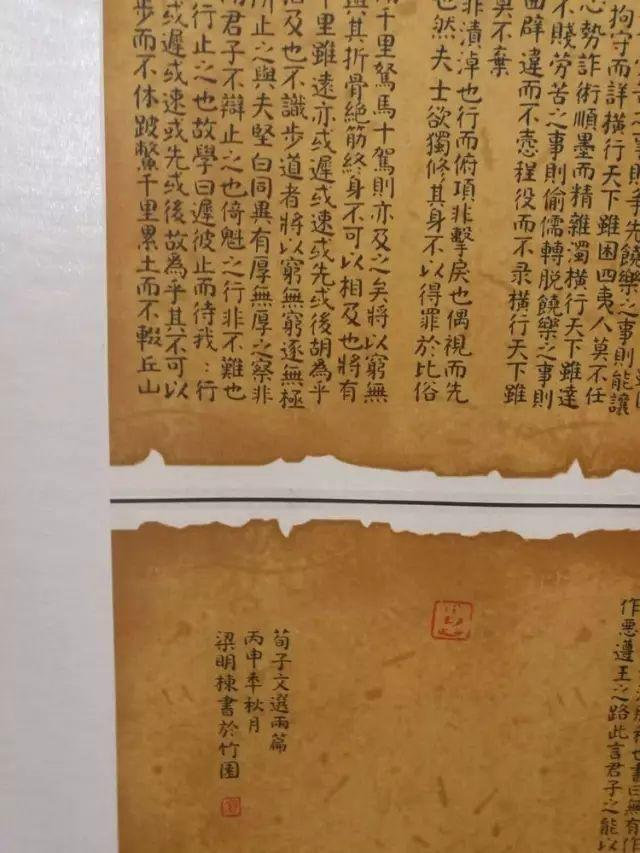 之事則爭先饒樂之事則能讓
拘守而詳橫行天下雖困四夷人莫不任
心勢詐術順墨而精雜濁橫行天下雖達
不賤勞苦之事則偷儒轉脫饒樂之事則
辟違而不愨程役而不录橫行天下雖
莫不棄
非漬淖也行而俯項非擊戾也偶視而先
也然夫士欲獨修其身不以得罪於比俗
而千里駑馬十駕則亦及之矣將以窮無
與其折骨絕筋終身不可以相及也將有
千里雖遠亦或遲或速或先或後胡為乎
及也不識步道者將以窮無窮逐無極
所止之與夫堅白同異有厚無厚之察非
君子不辯止之也倚魁之行非不難也
行止之也故學曰遲彼止而待我：行
或遲或速或先或後故為乎其不可以
步而不休跛鱉千里累土而不輟丘山
書曰無有作
作惡遵王之路此言君子之能以
荀子文選兩篇
丙申年秋月
梁明棟書於竹園